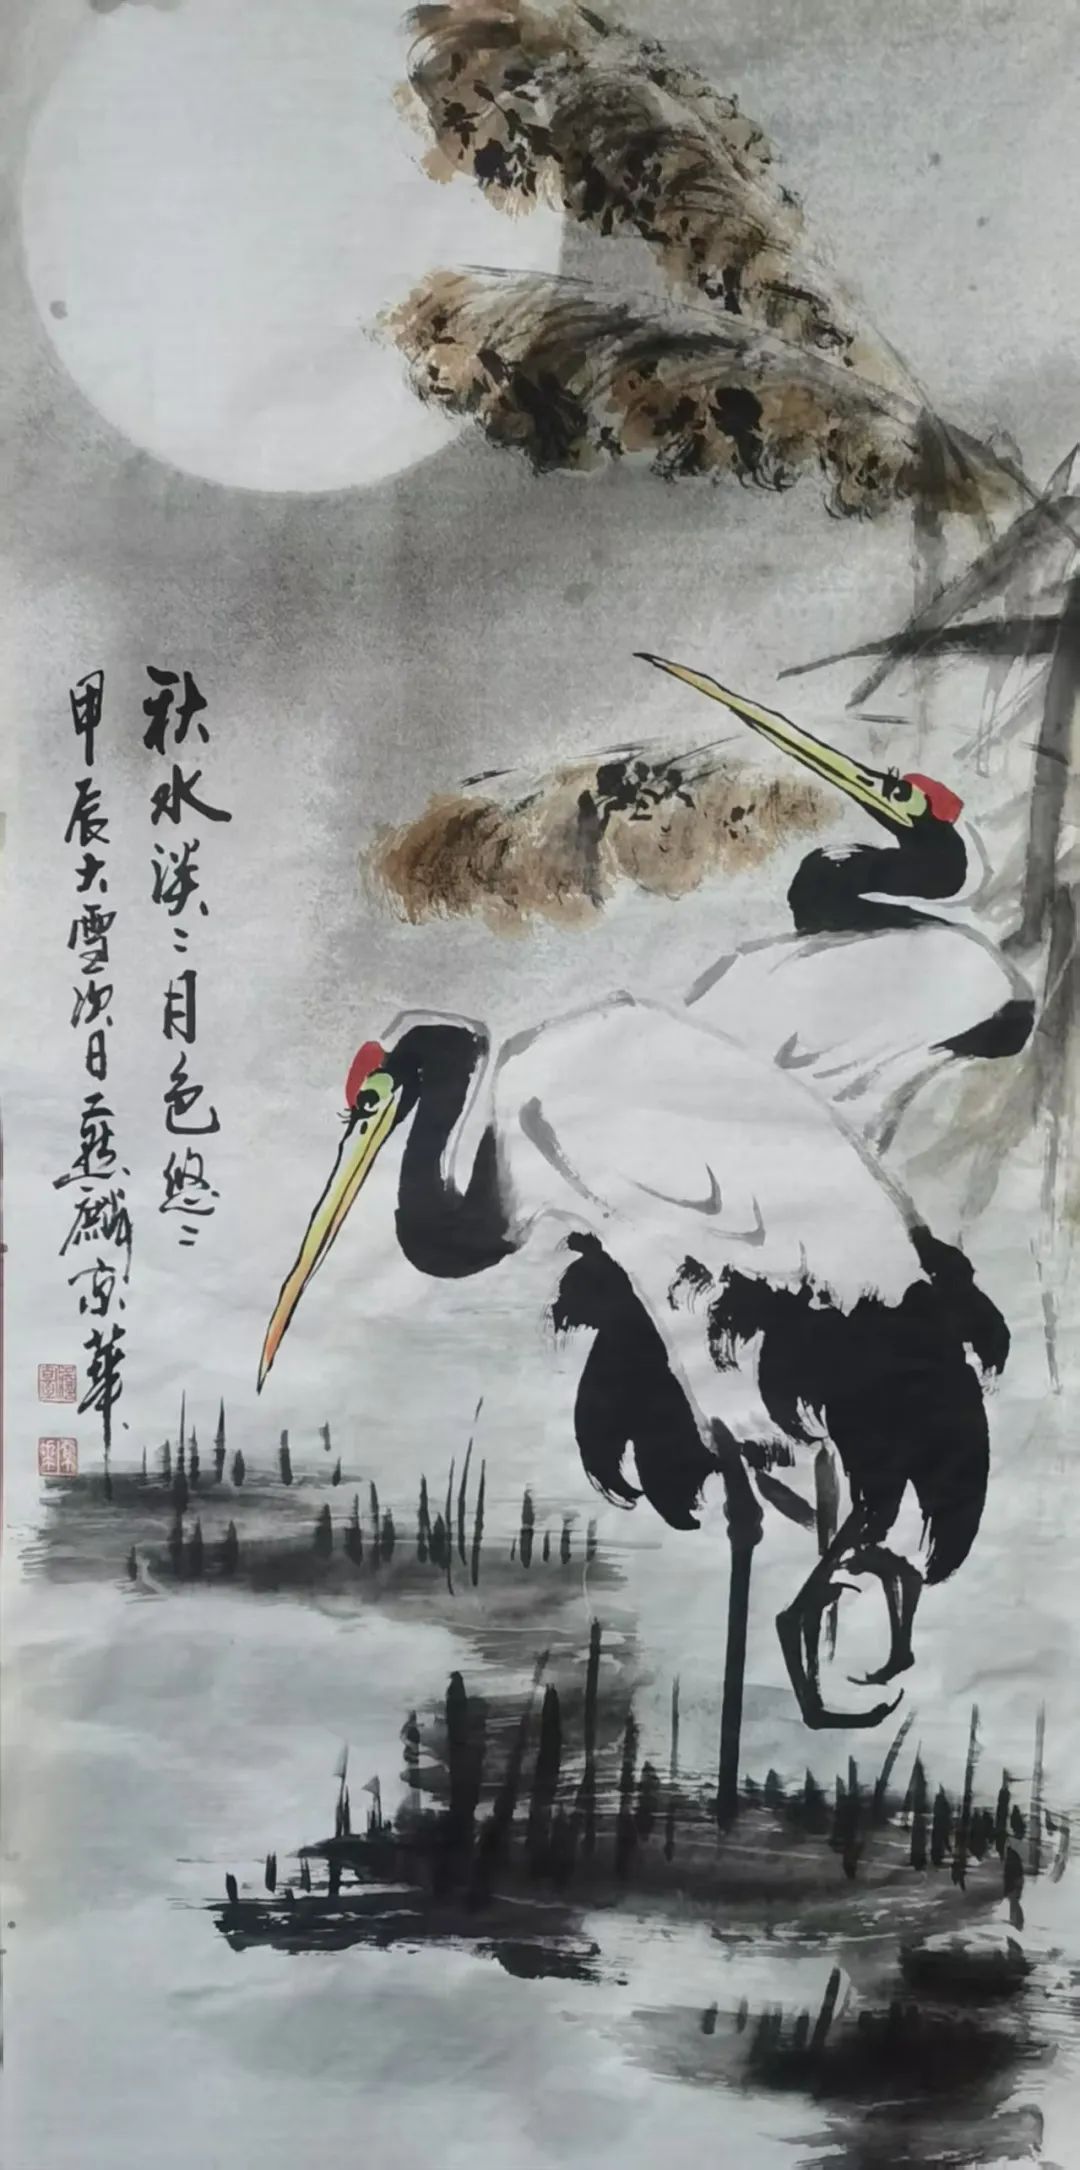 秋水淡〻月色悠〻
甲辰大雪次日 麟 京華